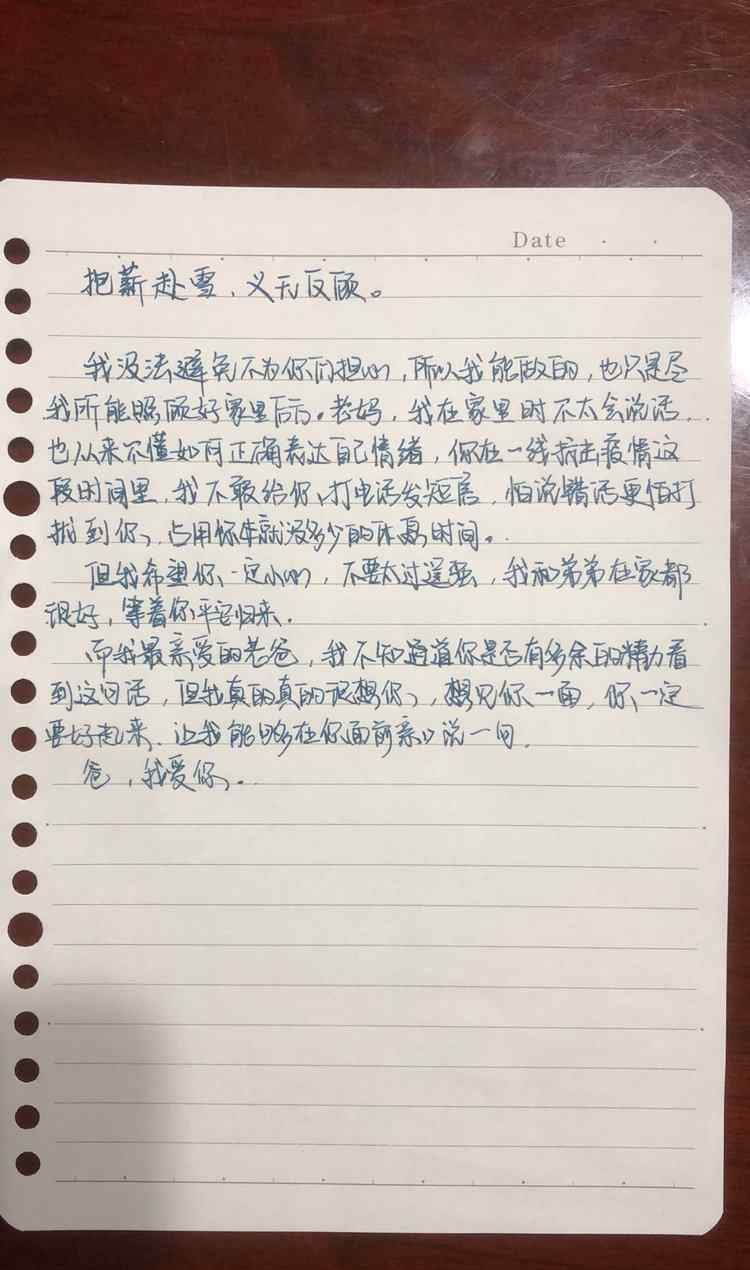 Date
抱薪赴雪、义无反顾。
我没法避免不为你们担心，所以我能做的，也只是尽
我所能照顾好家里后雨。老妈，我在家里时不太会说话，
也从来不懂如何正确表达自己情绪，你在一线抗击疫情这
段时间里，我不敢给你打电话发短信，怕说错话更怕打
扰到你，占用你本就没多少的休息时间。
但我希望你一定小心，不要太过逞强，我和弟弟在家都
很好，等着你平安归来。
而我最亲爱的老爸，我不知道道你是否有多余的精力看
到这句话，但我真的真的很想你，想见你一面，你一定
要好起来、让我能够在你面前亲口说一句，
爸，我爱你。